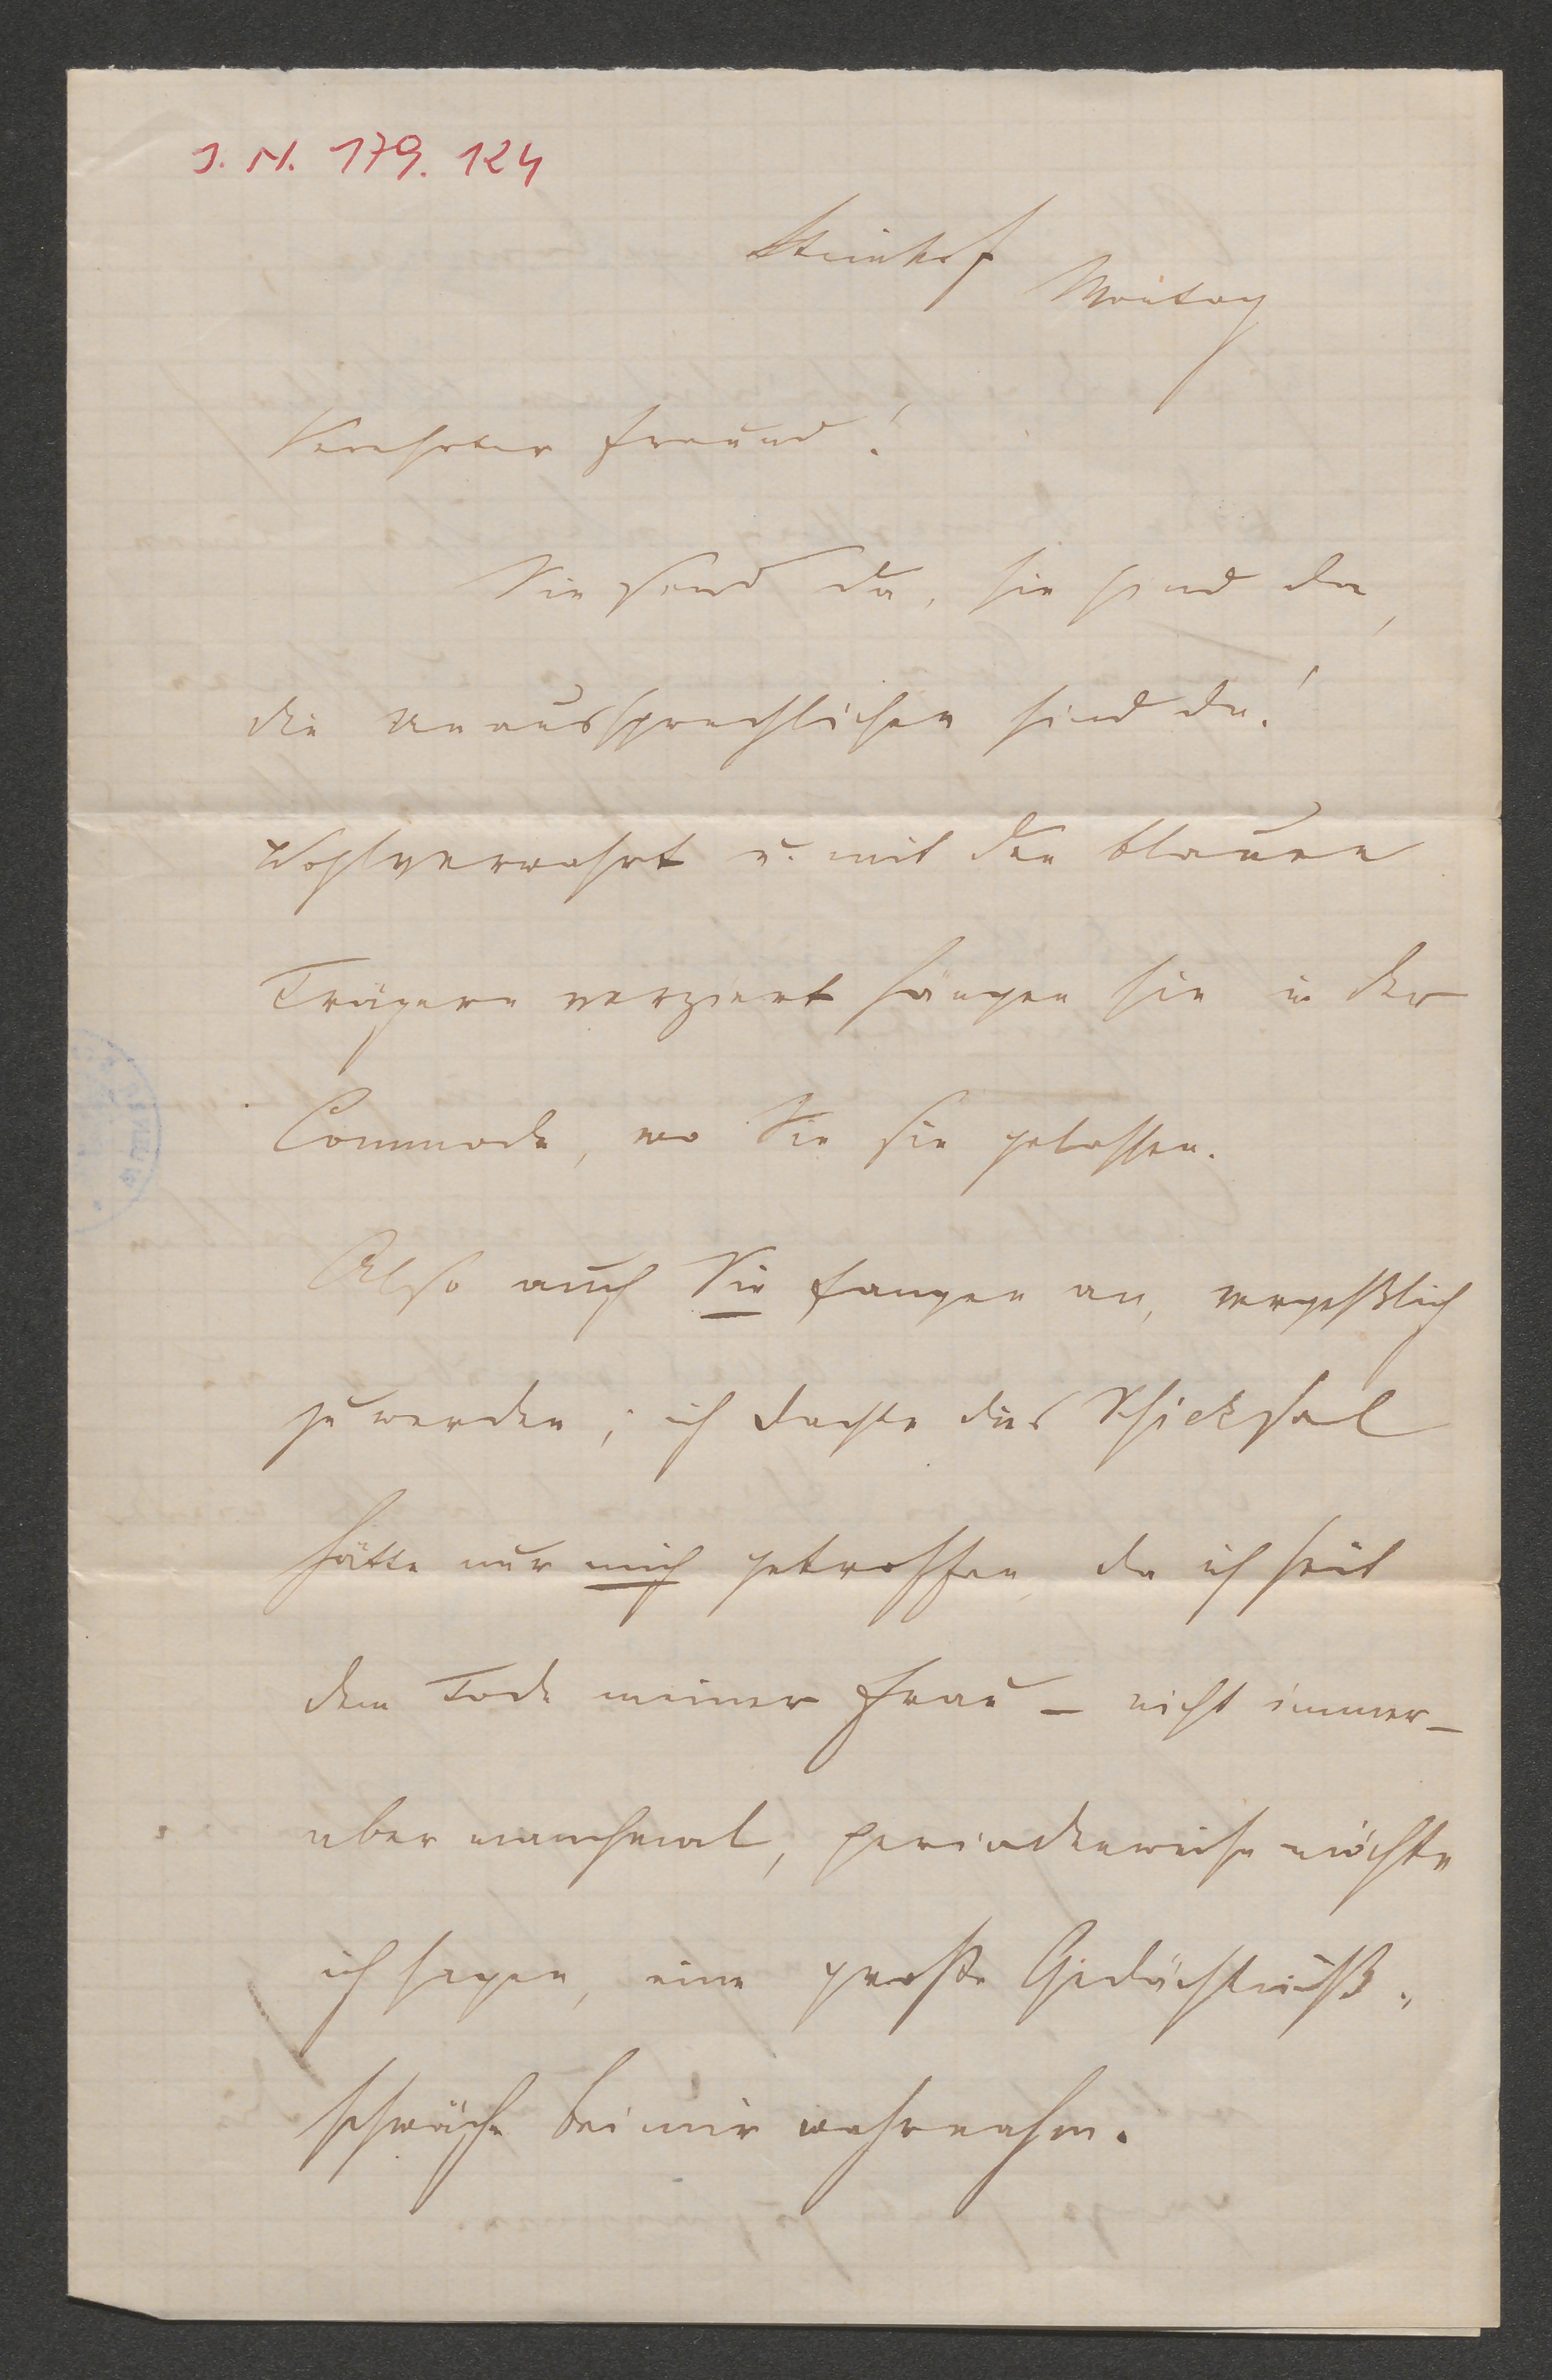 I. N. 179. 124
Steinhof
Montag
Verehrter Freund!
Sie sind da, sie sind da,
die Unaussprechlichen sind da!
Wohlverwahrt u. mit den blauen
Trägern verziert hängen sie in der
Commode, wo Sie sie gelassen.
Also auch Sie fangen an, vergeßlich
zu werden; ich dachte dies Schicksal
hätte nur mich getroffen, da ich seit
dem Tode meiner Frau – nicht immer –
aber manchmal, periodenweise möchte
ich sagen, eine große Gedächtniß-
schwäche bei mir wahrnahm.